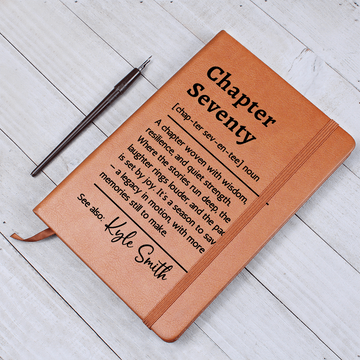 Chapter
Seventy
[chap-ter sev-en-tee] noun
A chapter woven with wisdom,
resilience, and quiet strength.
Where the stories run deep, the
laughter rings louder, and the pac
is set by joy. It's a season to sav
a legacy in motion, with more
memories still to make.
See also: Kyle Smith